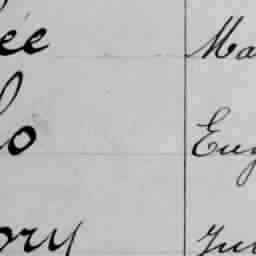 ée Ma
lo Eug
ory Jul